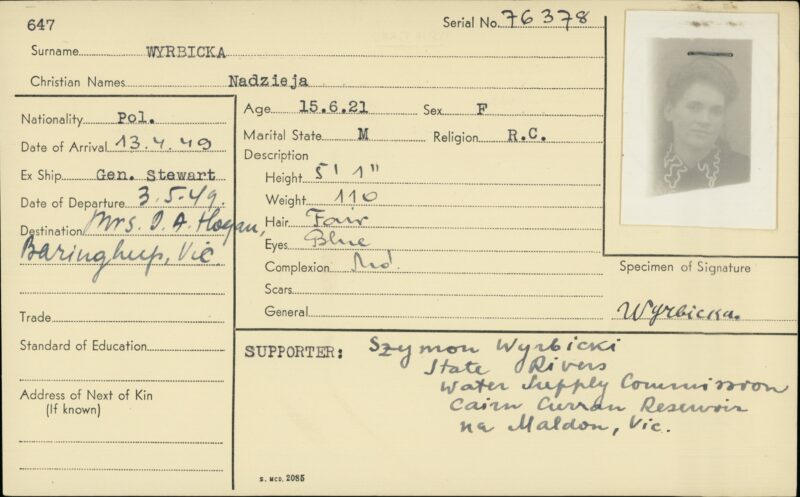 647
Serial No. 76378
Surname WYRBICKA
Christian Names Nadzieja
Nationality Pol.
Date of Arrival 13.4.49
Ex Ship Gen. Stewart
Date of Departure 3.5.49.
Destination Mrs. D. A. Hogan,
Baringhup, Vic.
Trade
Standard of Education
Address of Next of Kin
(If known)
Age 15.6.21 Sex F
Marital State M Religion R.C.
Description
Height 5' 1"
Weight 110
Hair Fair
Eyes Blue
Complexion Md.
Scars
General
Specimen of Signature
Wyrbicka.
SUPPORTER: Szymon Wyrbicki
State Rivers
Water Supply Commission
Cairn Curran Reservoir
na Maldon, Vic.
S. MCD. 2085